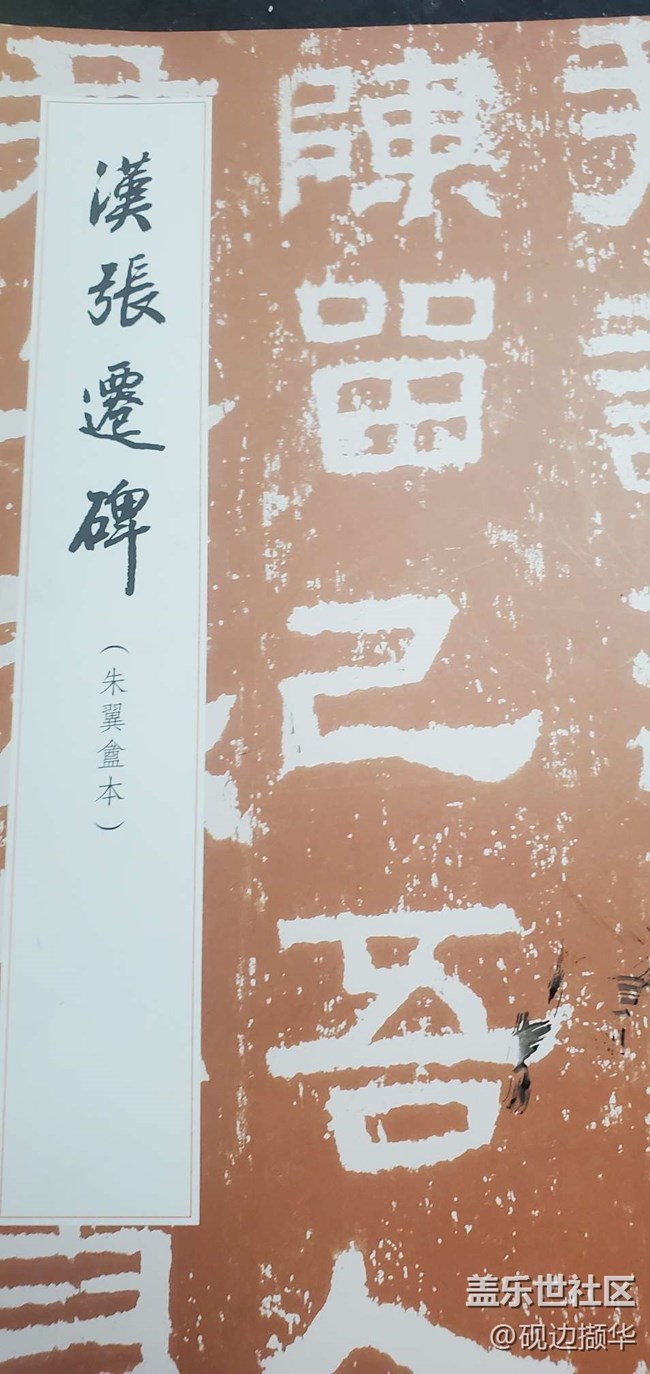 陳留己吾
漢張遷碑
（朱翼盦本）
盖乐世社区
@砚边撷华